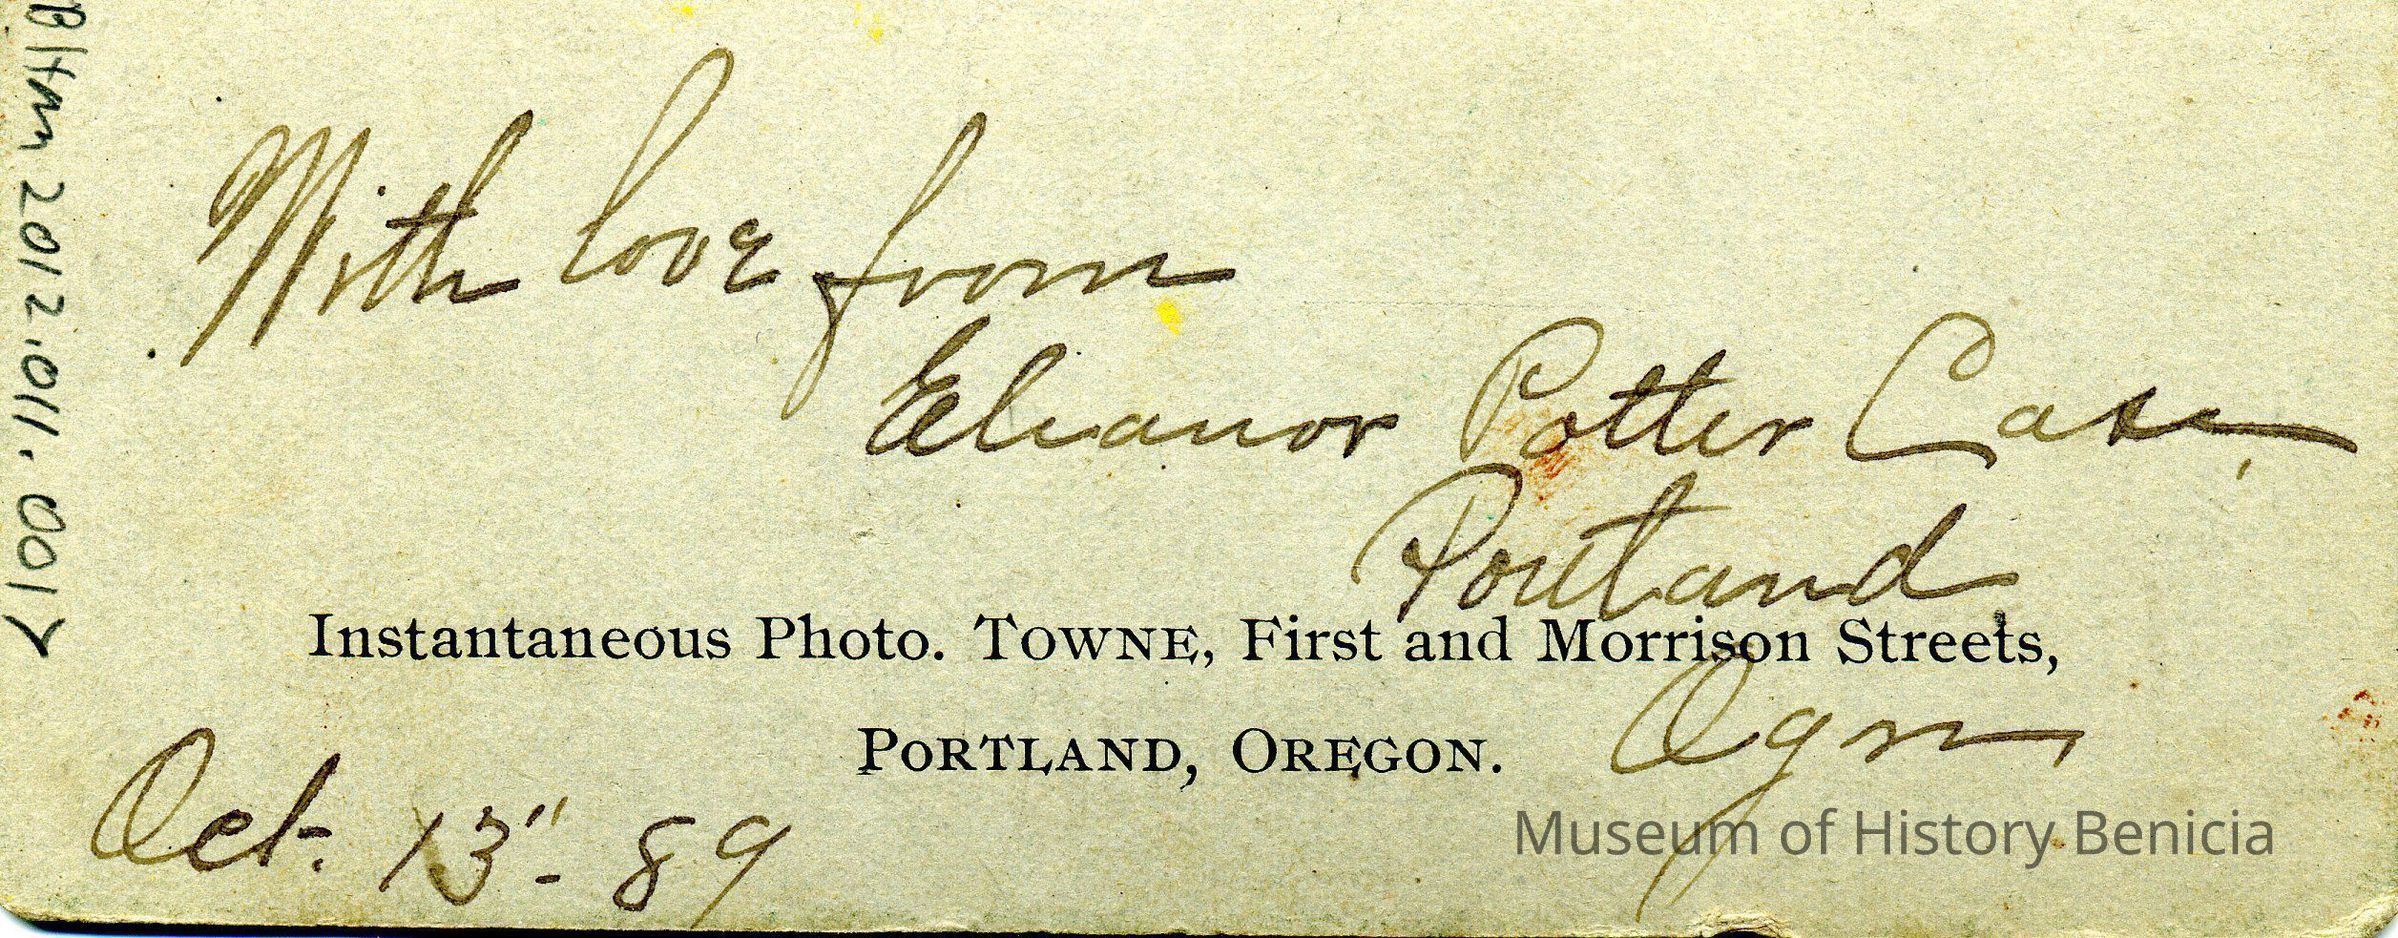 With love from
Eleanor Potter Case,
Portland
Instantaneous Photo. TOWNE, First and Morrison Streets,
Ogn
PORTLAND, OREGON.
Oct. 13" - 89
Museum of History Benicia
2012.011.0017